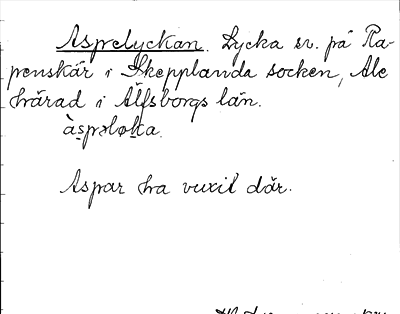 Asprelyckan. Lycka sv. på Ra-
penskär i Skepplanda socken, Ale
härad i Älfsborgs län.
àspreløka.
Aspar ha vuxit där.